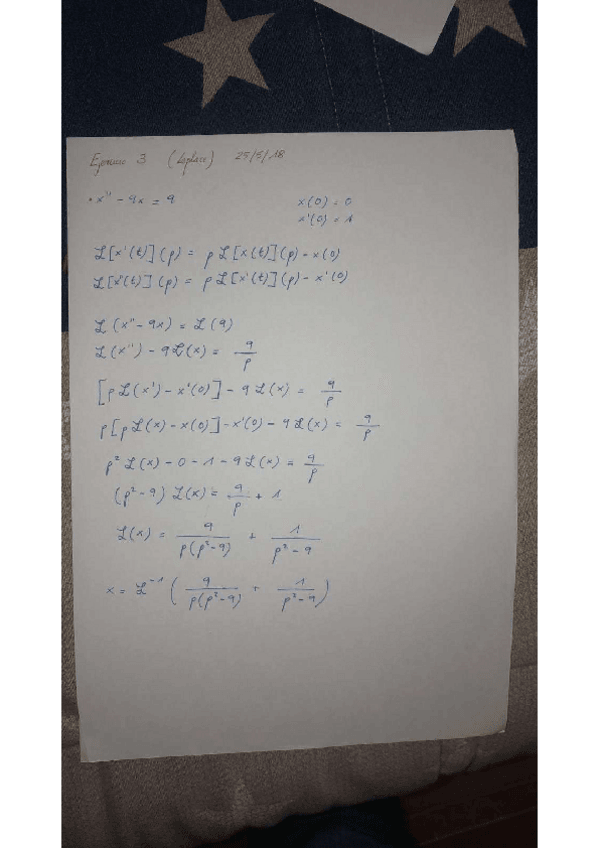 Ejercicio 3 (Laplace) 25/5/18
• x'' - 9x = 9 x(0) = 0
x'(0) = 1
ℒ[x'(t)](p) = p ℒ[x(t)](p) - x(0)
ℒ[x''(t)](p) = p ℒ[x'(t)](p) - x'(0)
ℒ(x'' - 9x) = ℒ(9)
ℒ(x'') - 9ℒ(x) = 9/p
[p ℒ(x') - x'(0)] - 9 ℒ(x) = 9/p
p[p ℒ(x) - x(0)] - x'(0) - 9 ℒ(x) = 9/p
p² ℒ(x) - 0 - 1 - 9 ℒ(x) = 9/p
(p² - 9) ℒ(x) = 9/p + 1
ℒ(x) = 9/(p(p² - 9)) + 1/(p² - 9)
x = ℒ⁻¹ ( 9/(p(p² - 9)) + 1/(p² - 9) )